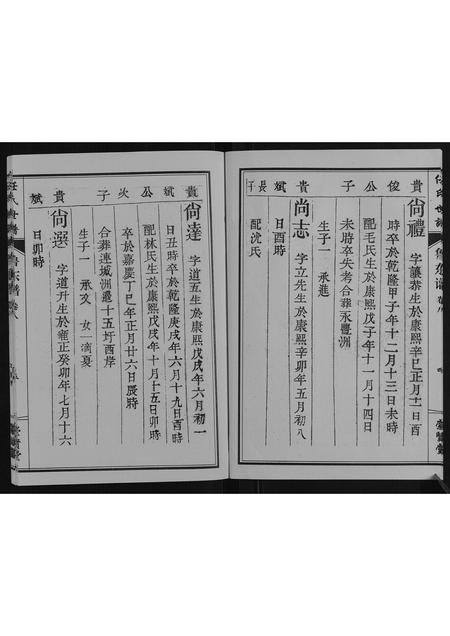 貴俊公
尚禮 字讓恭生於康熙辛巳正月十一日酉
時卒於乾隆甲子年十二月十三日未時
配毛氏生於康熙戊子年十一月十四日
未時卒失考合葬永豐洲
生子一 承進
貴斌長子
尚志 字立先生於康熙辛卯年五月初八
日酉時
配沈氏
貴斌公次子
尚達 字道五生於康熙戊戌年六月初一
日丑時卒於乾隆庚戌年六月十九日酉時
配林氏生於康熙戊戌年十月十五日卯時
卒於嘉慶丁巳年正月廿六日辰時
合葬連城洲叢十五圩西岸
生子一 承文 女一適夏
貴斌
尚選 字道升生於雍正癸卯年七月十六
日卯時
任氏世譜